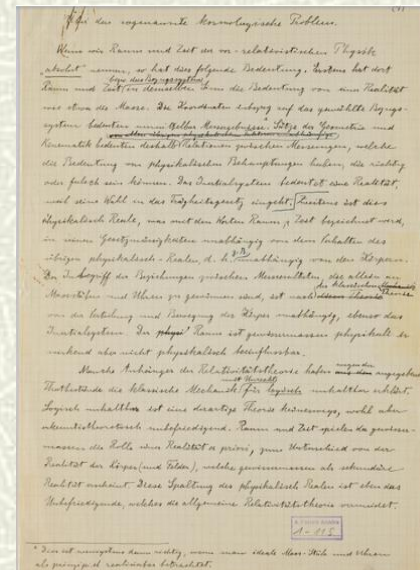 Über das sogenannte kosmologische Problem.
Wenn wir Raum und Zeit der vor-relativistischen Physik
"absolut" nennen, so hat dies folgende Bedeutung. Erstens hat dort
bezw. das Bezugssystem
Raum und Zeit in demselben Sinn die Bedeutung von einer Realität
wie etwa die Masse. Die Koordinaten inbezug auf das gewählte Bezugs-
system bedeuten unmittelbar Messergebnisse. Sätze der Geometrie und
Kinematik bedeuten deshalb Relationen zwischen Messungen, welche
die Bedeutung von physikalischen Behauptungen haben, die richtig
oder falsch sein können. Das Inertialsystem bedeutet eine Realität,
weil seine Wahl in das Trägheitsgesetz eingeht. Zweitens ist dies
physikalisch Reale, was mit den Worten Raum, Zeit bezeichnet wird,
in seinen Gesetzmässigkeiten unabhängig von dem Verhalten des
übrigen physikalisch-Realen, d. h. z. B. unabhängig von den Körpern.
Der Inbegriff der Beziehungen zwischen Messresultaten, die allein an
Massstäben und Uhren zu gewinnen sind, ist nach
der klassischen
Theorie
von der Verteilung und Bewegung der Körper unabhängig, ebenso das
Inertialsystem. Der Raum ist gewissermassen physikalisch
wirkend aber nicht physikalisch beeinflussbar.
Manche Anhänger der Relativitätstheorie haben wegen der angegebenen
mit Unrecht
Thatbestände die klassische Mechanik für logisch unhaltbar erklärt.
Logisch unhaltbar ist eine derartige Theorie keineswegs, wohl aber
erkenntnistheoretisch unbefriedigend. Raum und Zeit spielen da gewisser-
massen die Rolle einer Realität a priori, zum Unterschied von der
Realität der Körper (und Felder), welche gewissermassen als sekundäre
Realität erscheint. Diese Spaltung des physikalisch Realen ist eben das
Unbefriedigende, welches die allgemeine Relativitätstheorie vermeidet.
1-115
* Dies ist wenigstens dann richtig, wenn man ideale Mass-Stäbe und Uhren
als prinzipiell realisierbar betrachtet.